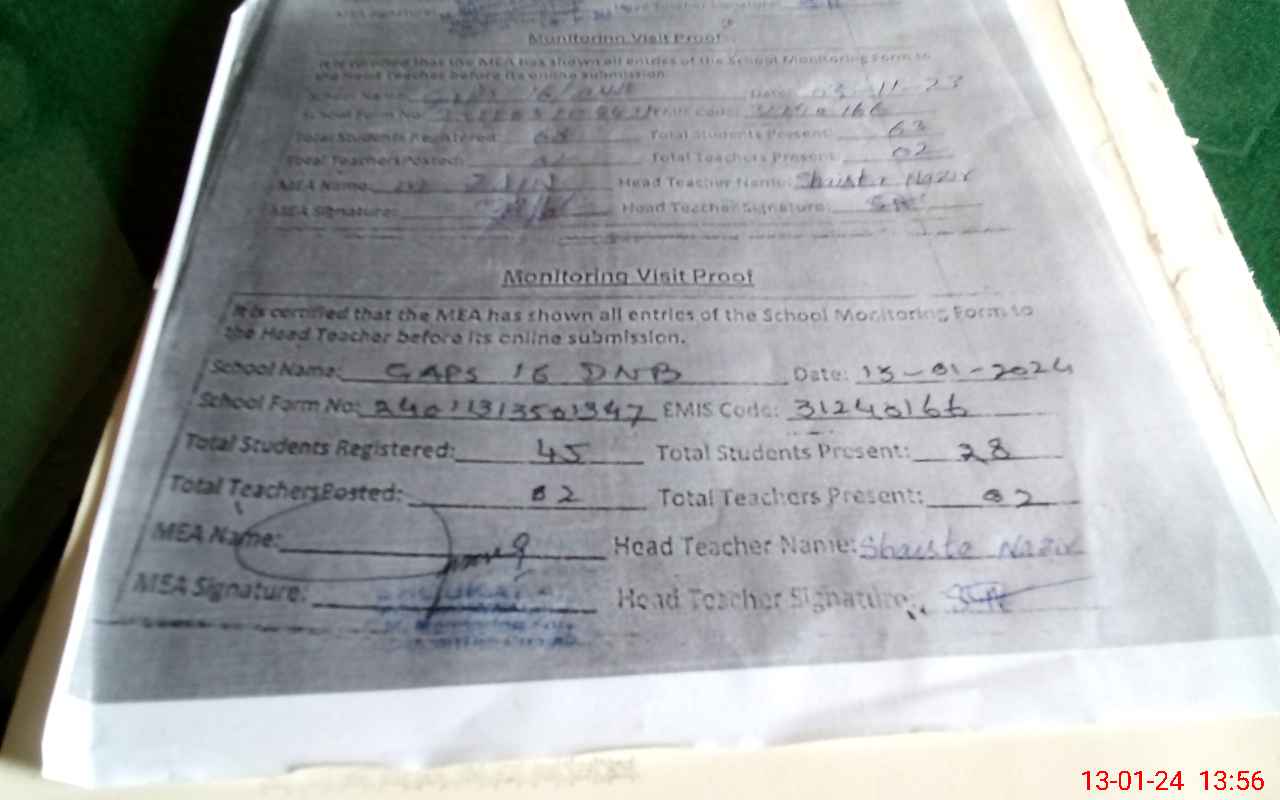 Monitoring Visit Proof
It is certified that the MEA has shown all entries of the School Monitoring Form to
the Head Teacher before its online submission.
School Name: Date: 03-11-23
School Form No: EMIS Code: 31240166
Total Students Registered: 68 Total Students Present: 63
Total Teachers Posted: Total Teachers Present: 02
MEA Name: Head Teacher Name: Shaista Nazir
MEA Signature: Head Teacher Signature:
Monitoring Visit Proof
It is certified that the MEA has shown all entries of the School Monitoring Form to
the Head Teacher before its online submission.
School Name: GAPS 16 DNB Date: 13-01-2024
School Form No: EMIS Code: 31240166
Total Students Registered: 45 Total Students Present: 28
Total Teachers Posted: 02 Total Teachers Present: 02
MEA Name: Head Teacher Name: Shaista Nazir
MEA Signature: Head Teacher Signature:
13-01-24 13:56